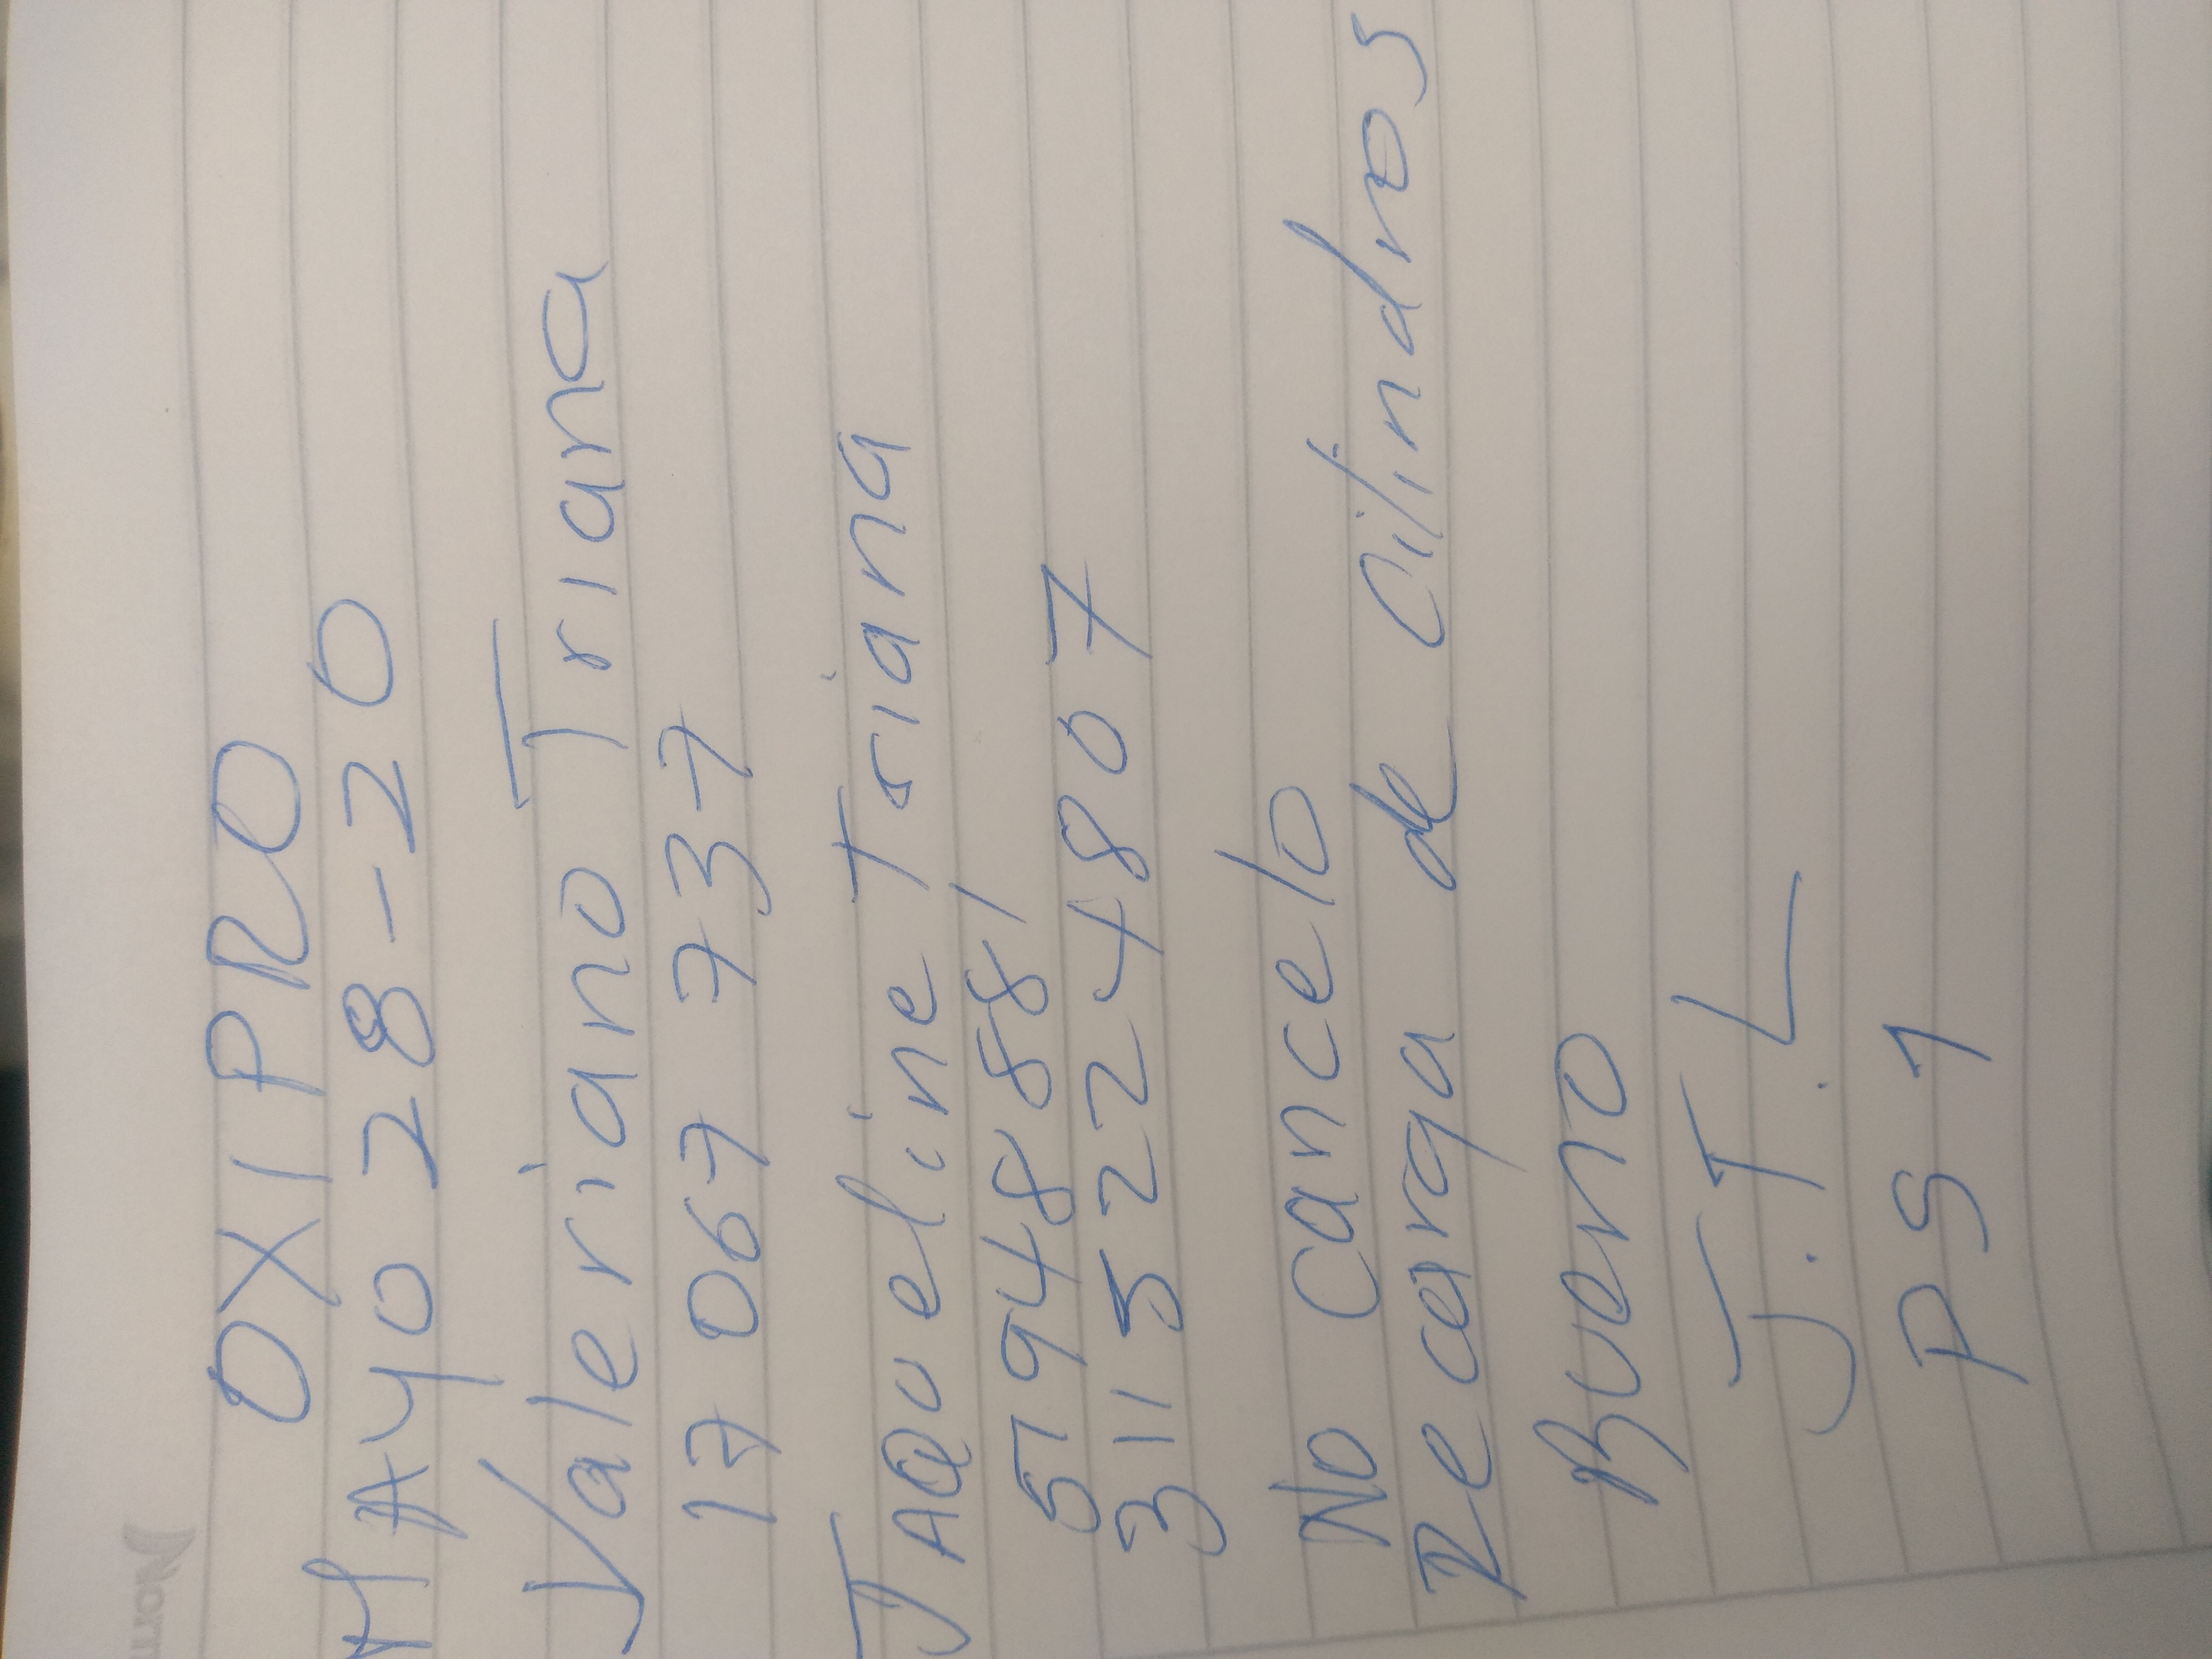 OXIPRO
MAYO 28-20
Valeriano Triana
17 067 737
JAQueline Triana
51948881
3115224807
No Cancelo
Recarga de Cilindros
Bueno
J.T.L
PS1